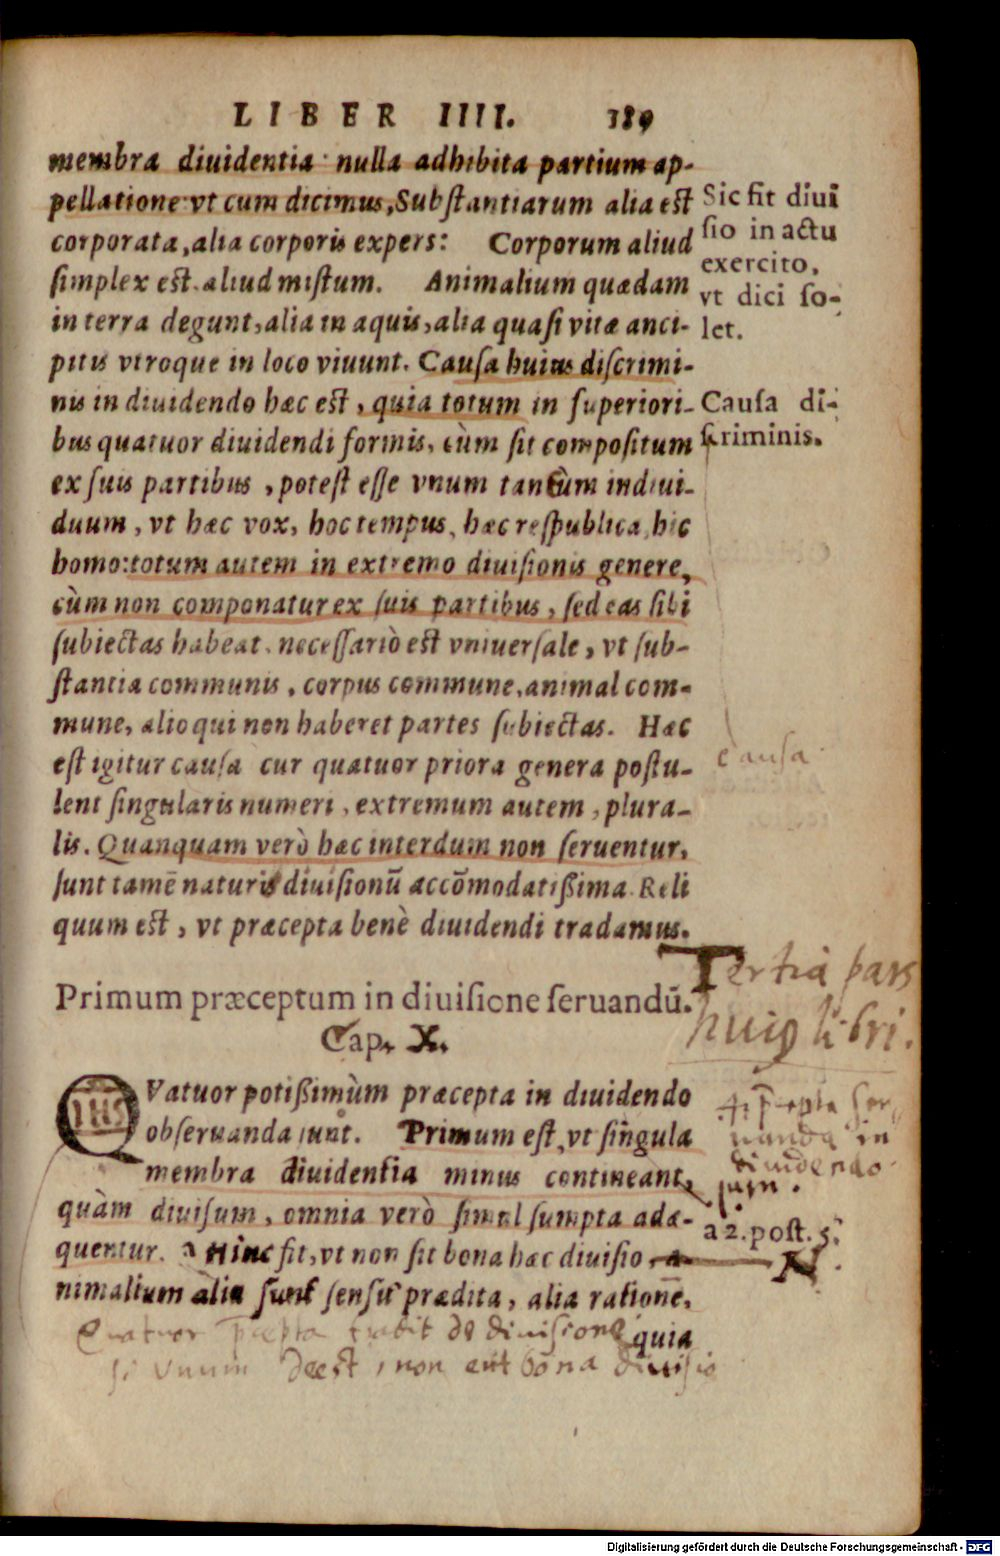 LIBER IIII. 189
membra diuidentia nulla adhibita partium ap-
pellatione vt cum dicimus, Substantiarum alia est
corporata, alia corporis expers: Corporum aliud
simplex est, aliud mistum. Animalium quædam
in terra degunt, alia in aquis, alia quasi vitæ anci-
pitis vtroque in loco viuunt. Causa huius discrimi-
nis in diuidendo hæc est, quia totum in superiori-
bus quatuor diuidendi formis, cùm sit compositum
ex suis partibus, potest esse vnum tantùm indiui-
duum, vt hæc vox, hoc tempus, hæc respublica, hic
homo: totum autem in extremo diuisionis genere,
cùm non componatur ex suis partibus, sed eas sibi
subiectas habeat, necessariò est vniuersale, vt sub-
stantia communis, corpus commune, animal com-
mune, alioqui non haberet partes subiectas. Hæc
est igitur causa cur quatuor priora genera postu-
lent singularis numeri, extremum autem, plura-
lis. Quanquam verò hæc interdum non seruentur,
sunt tamē naturis diuisionū accōmodatißima. Reli
quum est, vt præcepta benè diuidendi tradamus.
Sic fit diui
sio in actu
exercito,
vt dici so-
let.
Causa di-
scriminis.
Causa
Tertia pars
huiꝰ libri.
Primum præceptum in diuisione seruandū.
Cap. X.
QVatuor potißimùm præcepta in diuidendo
obseruanda sunt. Primum est, vt singula
membra diuidentia minus contineant,
quàm diuisum, omnia verò simul sumpta adæ-
quentur. a Hinc fit, vt non sit bona hæc diuisio, a-
nimalium alia sunt sensu prædita, alia rationē,
quia
4 p̄cepta ser
uanda in
diuidendo
sunt.
a 2. post. 5.
N
Quatuor p̄cepta tradit de diuisione
si vnum deest, non erit bona diuisio
Digitalisierung gefördert durch die Deutsche Forschungsgemeinschaft - DFG